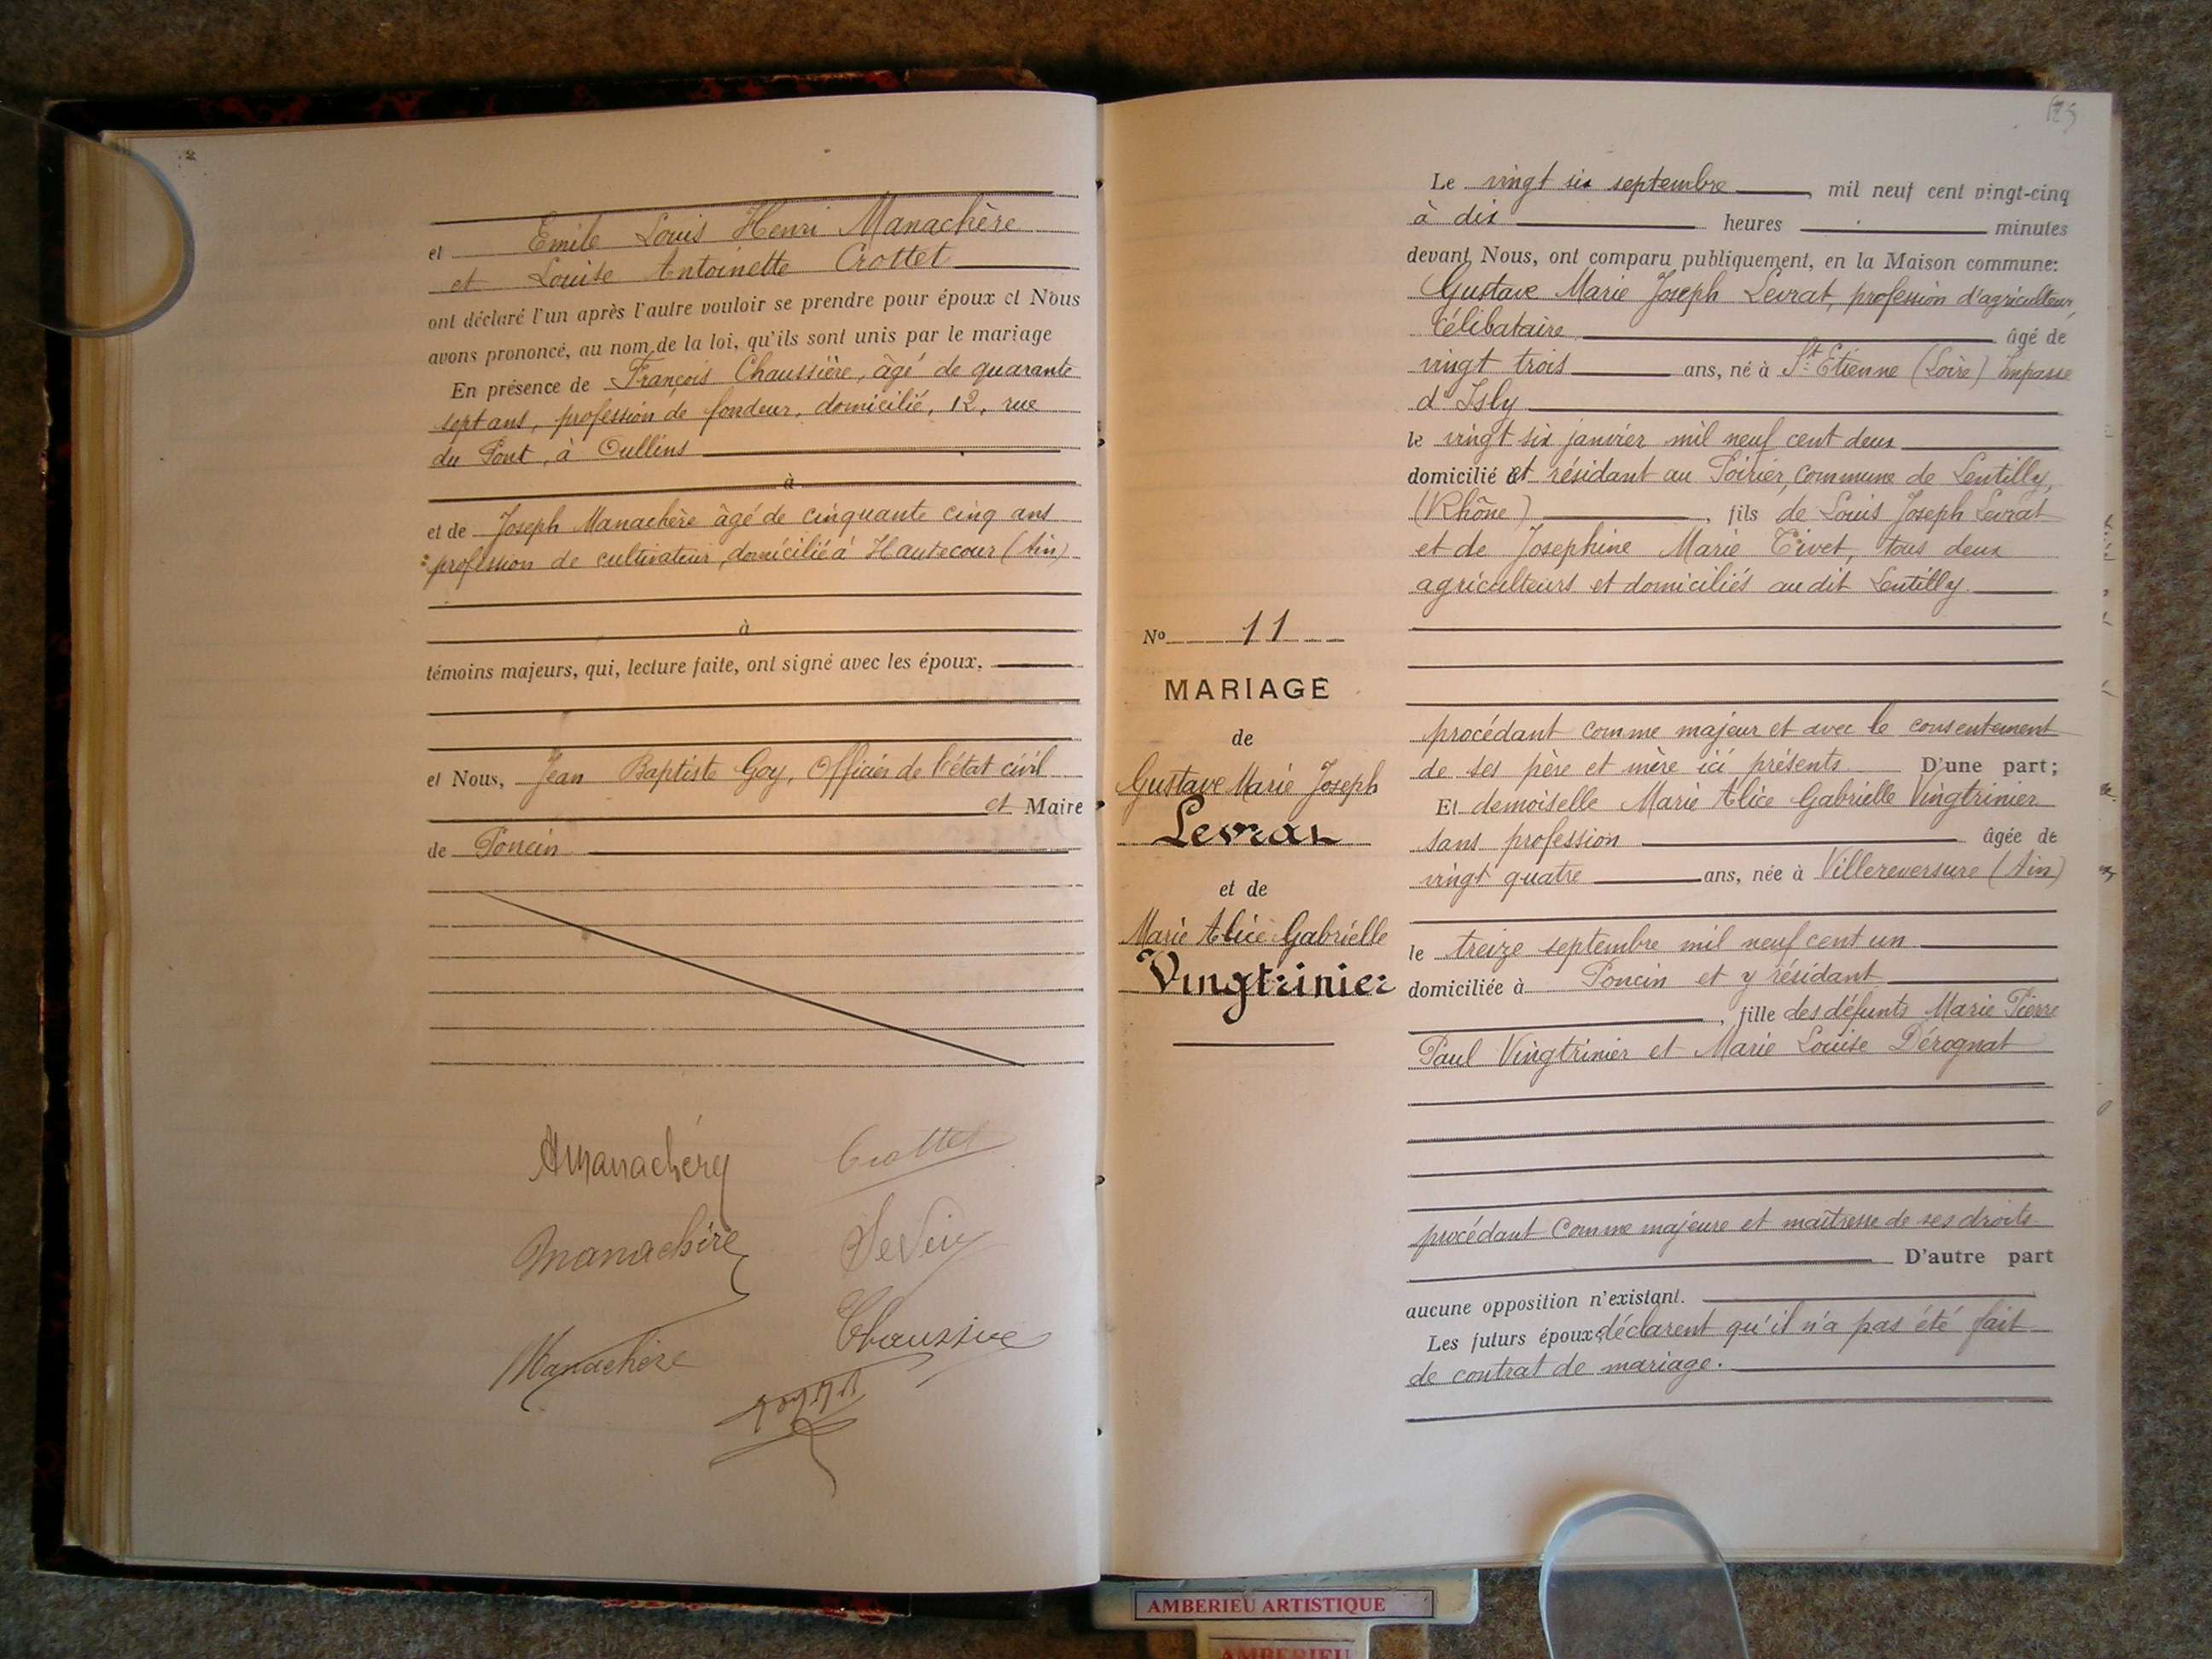 et Emile Louis Henri Manachère
et Louise Antoinette Crottet
ont déclaré l'un après l'autre vouloir se prendre pour époux et Nous
avons prononcé, au nom de la loi, qu'ils sont unis par le mariage
En présence de François Chaussière, âgé de quarante
sept ans, profession de fondeur, domicilié, 12, rue
du Pont, à Oullins
à
et de Joseph Manachère âgé de cinquante cinq ans
profession de cultivateur, domicilié à Hautecour (Ain)
à
témoins majeurs, qui, lecture faite, ont signé avec les époux,
et Nous, Jean Baptiste Goy, Officier de l'état civil
et Maire
de Poncin
Manachère Crottet
Manachère
Manachère
N° 11
MARIAGE
de
Gustave Marie Joseph
Levrat
et de
Marie Alice Gabrielle
Vingtrinier
Le vingt six septembre, mil neuf cent vingt-cinq
à dix heures minutes
devant Nous, ont comparu publiquement, en la Maison commune:
Gustave Marie Joseph Levrat, profession d'agriculteur,
célibataire âgé de
vingt trois ans, né à St Etienne (Loire) Impasse
d'Isly
le vingt six janvier mil neuf cent deux
domicilié et résidant au Poirier, commune de Lentilly,
(Rhône), fils de Louis Joseph Levrat
et de Josephine Marie Tivet, tous deux
agriculteurs et domiciliés au dit Lentilly
procédant comme majeur et avec le consentement
de ses père et mère ici présents D'une part;
Et demoiselle Marie Alice Gabrielle Vingtrinier
sans profession âgée de
vingt quatre ans, née à Villereversure (Ain)
le treize septembre mil neuf cent un
domiciliée à Poncin et y résidant
, fille des défunts Marie Pierre
Paul Vingtrinier et Marie Louise Dérognat
procédant comme majeure et maîtresse de ses droits
D'autre part
aucune opposition n'existant.
Les futurs époux déclarent qu'il n'a pas été fait
de contrat de mariage.
AMBERIEU ARTISTIQUE
AMBERIEU